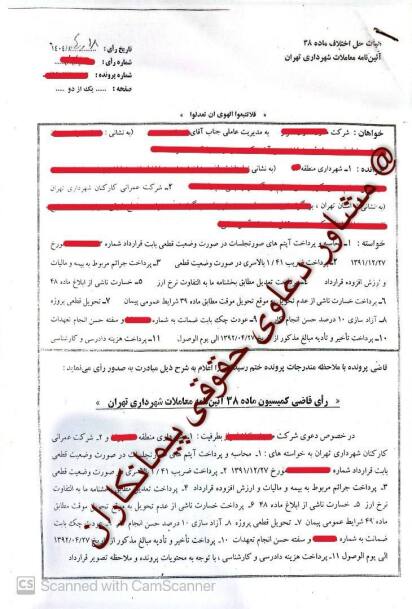 هیات حل اختلاف ماده ۳۸
آئین‌نامه معاملات شهرداری تهران
تاریخ رأی :
شماره رأی :
شماره پرونده :
صفحه : .... یک از دو ....
فلاتتبعوا الهوی ان تعدلوا
خواهان : شرکت به مدیریت عاملی جناب آقای (به نشانی :
خوانده : ۱ـ شهرداری منطقه (به نشانی
۲ـ شرکت عمرانی کارکنان شهرداری تهران
(به نشانی تهران ،
خواسته : ۱ـ محاسبه و پرداخت آیتم های صورتجلسات در صورت وضعیت قطعی بابت قرارداد شماره مورخ
۱۳۹۱/۱۲/۲۷ ۲ـ پرداخت ضریب ۱/۴۱ بالاسری در صورت وضعیت قطعی ۳ـ پرداخت جرائم مربوط به بیمه و مالیات
و ارزش افزوده قرارداد پرداخت تعدیل مطابق بخشنامه ما به التفاوت نرخ ارز ۵ـ خسارت ناشی از ابلاغ ماده ۴۸
۶ـ پرداخت خسارت ناشی از عدم تحویل به موقع تحویل موقت مطابق ماده ۳۹ شرایط عمومی پیمان ۷ـ تحویل قطعی پروژه
۸ـ آزاد سازی ۱۰ درصد حسن انجام کار ۹ـ عودت چک بابت ضمانت به شماره و سفته حسن انجام تعهدات
۱۰ـ پرداخت تأخیر و تأدیه مبالغ مذکور از ۱۳۹۲/۰۴/۲۷ الی یوم الوصول ۱۱ـ پرداخت هزینه دادرسی و کارشناسی
قاضی پرونده با ملاحظه مندرجات پرونده ختم رسیدگی را اعلام به شرح ذیل مبادرت به صدور رأی می‌نماید:
رأی قاضی کمیسیون ماده ۳۸ آئین‌نامه معاملات شهرداری تهران
در خصوص دعوی شرکت بطرفیت : ۱ـ شهرداری منطقه و ۲ـ شرکت عمرانی
کارکنان شهرداری تهران به خواسته های : ۱ـ محاسبه و پرداخت آیتم های صورتجلسات در صورت وضعیت قطعی
بابت قرارداد شماره مورخ ۱۳۹۱/۱۲/۲۷ ۲ـ پرداخت ضریب ۱/۴۱ بالاسری در صورت وضعیت قطعی
۳ـ پرداخت جرائم مربوط به بیمه و مالیات و ارزش افزوده قرارداد پرداخت تعدیل مطابق بخشنامه ما به التفاوت
نرخ ارز ۵ـ خسارت ناشی از ابلاغ ماده ۴۸ ۶ـ پرداخت خسارت ناشی از عدم تحویل به موقع تحویل موقت مطابق
ماده ۴۹ شرایط عمومی پیمان ۷ـ تحویل قطعی پروژه ۸ـ آزاد سازی ۱۰ درصد حسن انجام ۹ـ عودت چک بابت
ضمانت به شماره و سفته حسن انجام تعهدات ۱۰ـ پرداخت تأخیر و تأدیه مبالغ مذکور از تاریخ ۱۳۹۲/۰۴/۲۷
الی یوم الوصول ۱۱ـ پرداخت هزینه دادرسی و کارشناسی ، با توجه به محتویات پرونده و ملاحظه تصویر قرارداد
@ مشاور دعاوی حقوقی پیمانکاران
CS Scanned with CamScanner